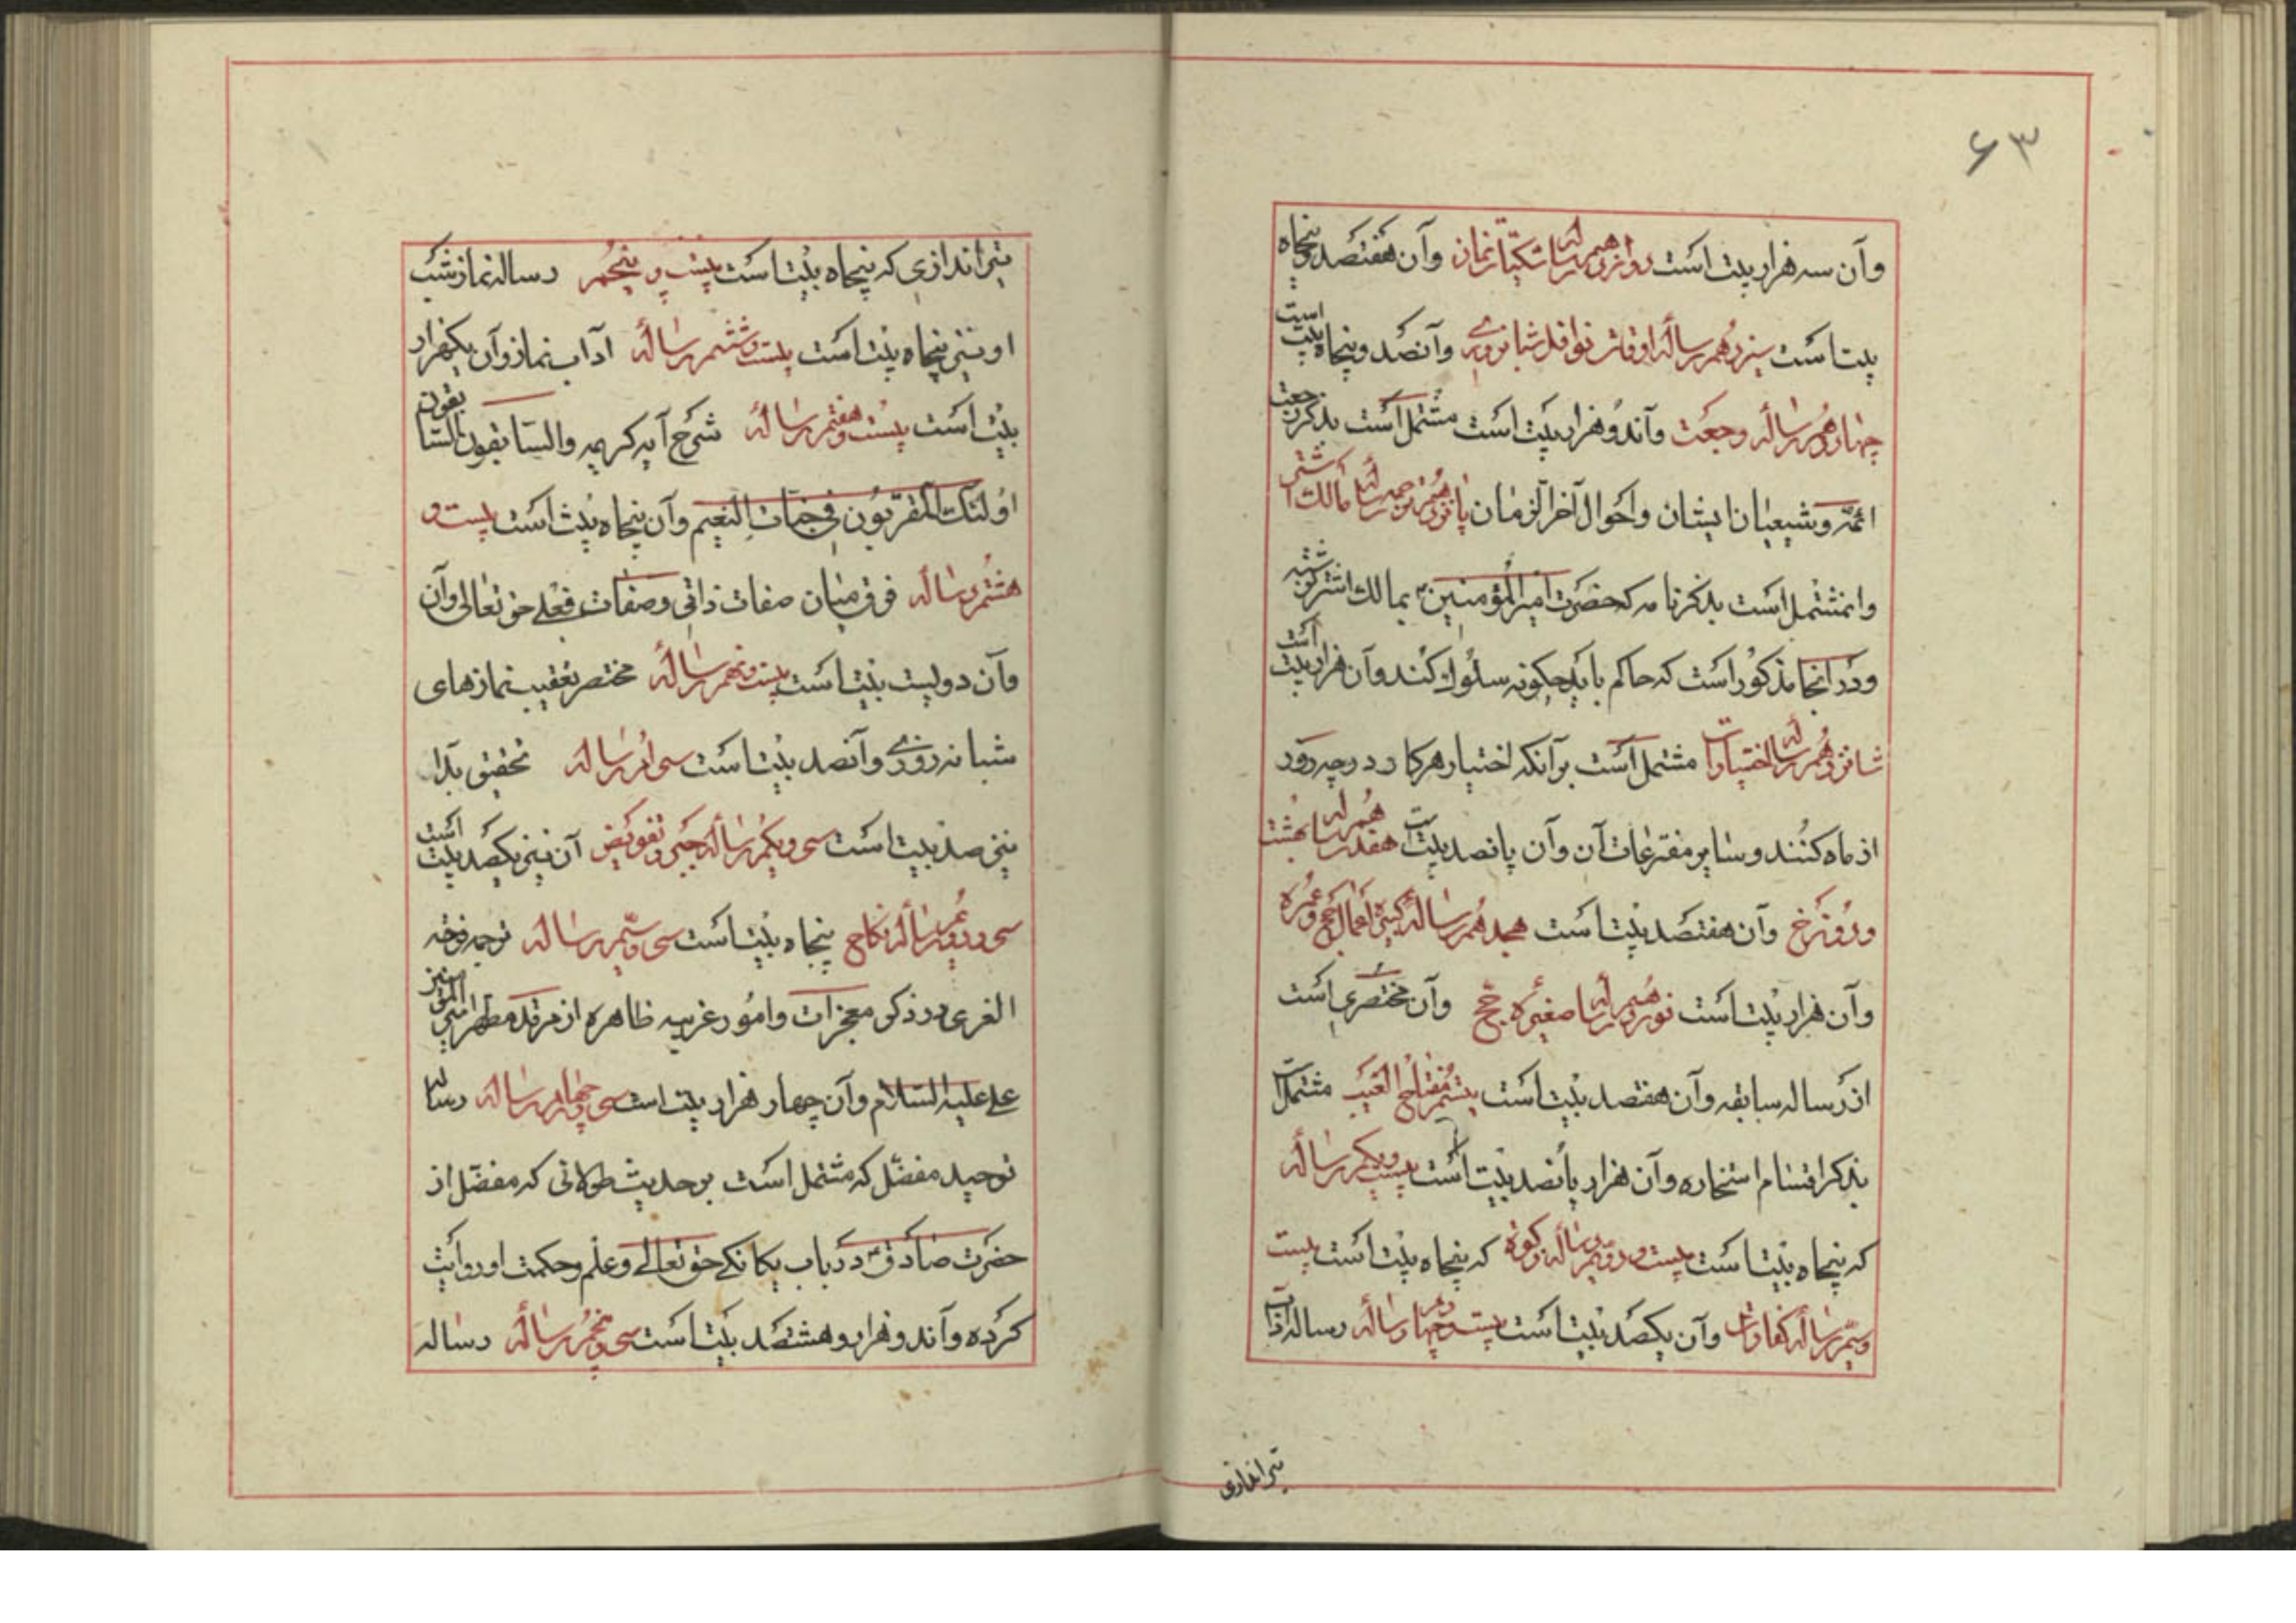 ۶۳
وآن سه هزار بیت است دوازدهم رساله شکیات نماز وآن هفتصد پنجاه
بیت است سیزدهم رساله اوقات نوافل شبانروزی وآن صد و پنجاه بیت است
چهاردهم رساله رجعت وآن دو هزار بیت است مشتمل است بذکر رجعت
ائمه و شیعیان ایشان و احوال آخر الزمان پانزدهم ترجمه رساله مالک اشتر
وان مشتمل است بذکر نامه که حضرت امیر المؤمنین بمالک اشتر نوشته
ودر انجا مذکور است که حاکم باید چکونه سلوک کند وآن هزار بیت است
شانزدهم رساله اختیارات مشتمل است برآنکه اختیار هر کار در چه روز
از ماه کنند و سایر متفرعات آن وآن پانصد بیت هفدهم رساله بهشت
ودوزخ وآن هفتصد بیت است هجدهم رساله کبیره اعمال حج و عمره
وآن هزار بیت است نوزدهم رساله صغیره حج وآن مختصری است
از رساله سابقه وآن هفتصد بیت است بیستم مفتاح الغیب مشتمل است
بذکر اقسام استخاره وآن هزار پانصد بیت است بیست ویکم رساله
که پنجاه بیت است بیست ودویم رساله زکوة که پنجاه بیت است بیست
وسیم رساله کفارات وآن یکصد بیت است بیست وچهارم رساله رساله اداب
تیراندازی
تیراندازی که پنجاه بیت است بیست و پنجم رساله نماز شب
او نیز پنجاه بیت است بیست وششم رساله آداب نماز وآن یکهزار
بیت است بیست وهفتم رساله شرح آیه کریمه والسابقون السابقون
اولئک المقربون فی جنات النعیم وآن پنجاه بیت است بیست و
هشتم رساله فرق میان صفات ذاتی وصفات فعلی حق تعالی وآن
وآن دویست بیت است بیست ونهم رساله مختصر تعقیب نمازهای
شبانه روزی وآن صد بیت است سی ام رساله تحقیق بدا
نیز صد بیت است سی ویکم رساله جبر وتفویض آن نیز یکصد بیت است
سی ودویم رساله نکاح پنجاه بیت است سی وسیم رساله ترجمه فرحة
الغری در ذکر معجزات وامور غریبه ظاهره از مرقد مطهر امیر المؤمنین
علی علیه السلام وآن چهار هزار بیت است سی وچهارم رساله رساله
توحید مفضل که مشتمل است بر حدیث طولانی که مفضل از
حضرت صادق در باب یکانکی حق تعالی وعلم وحکمت او روایت
کرده وآن دو هزار وهشتصد بیت است سی وپنجم رساله رساله